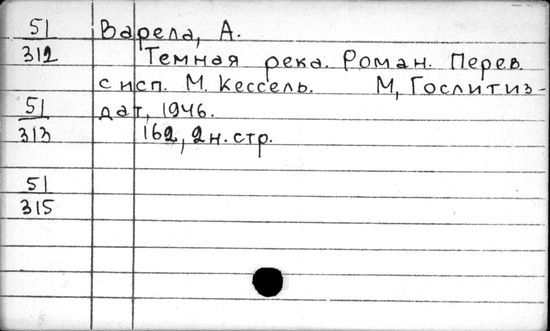 51 Варела, А.
312 Темная река. Роман. Перев.
с исп. М. Кессель. М, Гослитиз-
51 дат, 1946.
313 162, 2 н. стр.
51
315